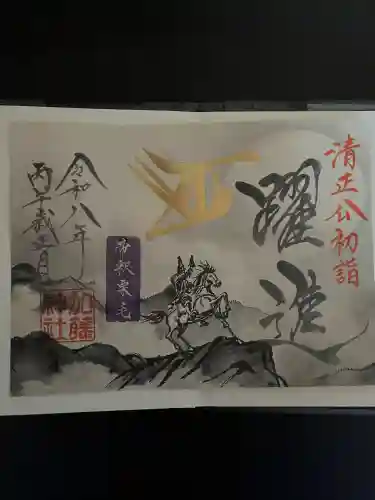 清正公初詣
躍進
帝釈栗毛
令和八年
丙午歳正月
加藤神社